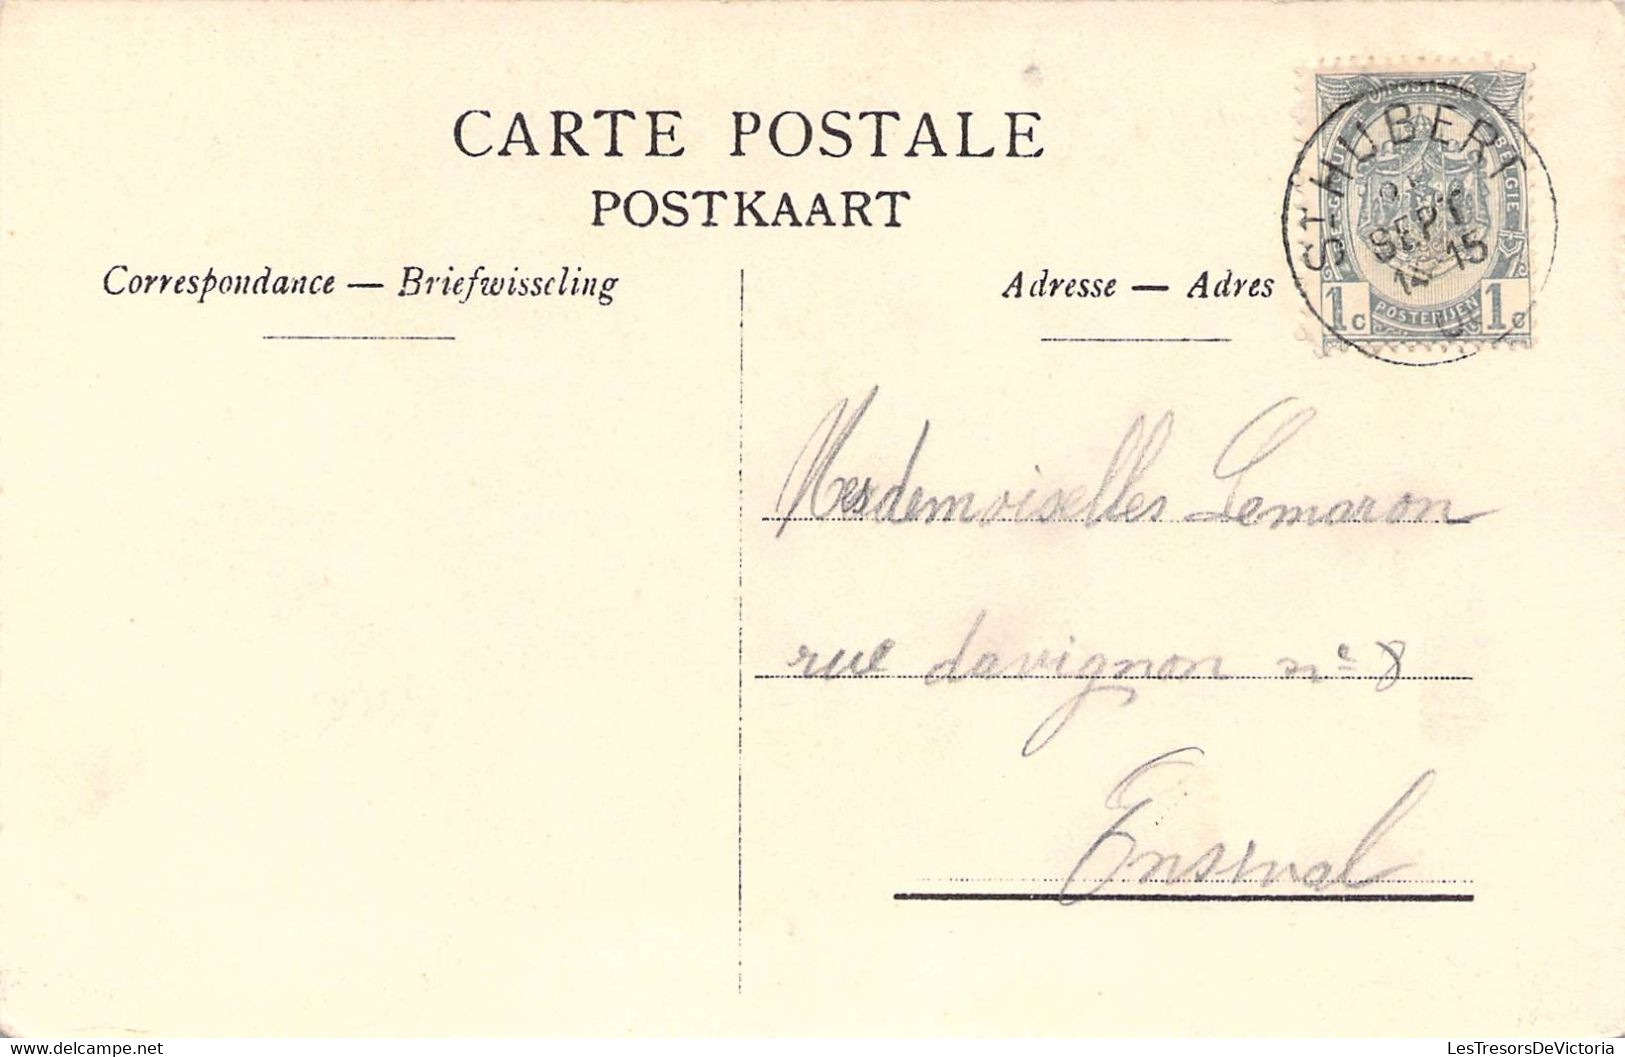 CARTE POSTALE
POSTKAART
Correspondance — Briefwisseling
Adresse — Adres
POSTES
BELGIQUE BELGIE
ST-HUBERT
SEPT
14-15
1c POSTERIJEN 1c
Mesdemoiselles Lemaron
rue davignon n° 8
Ensival
delcampe.net
LesTresorsDeVictoria